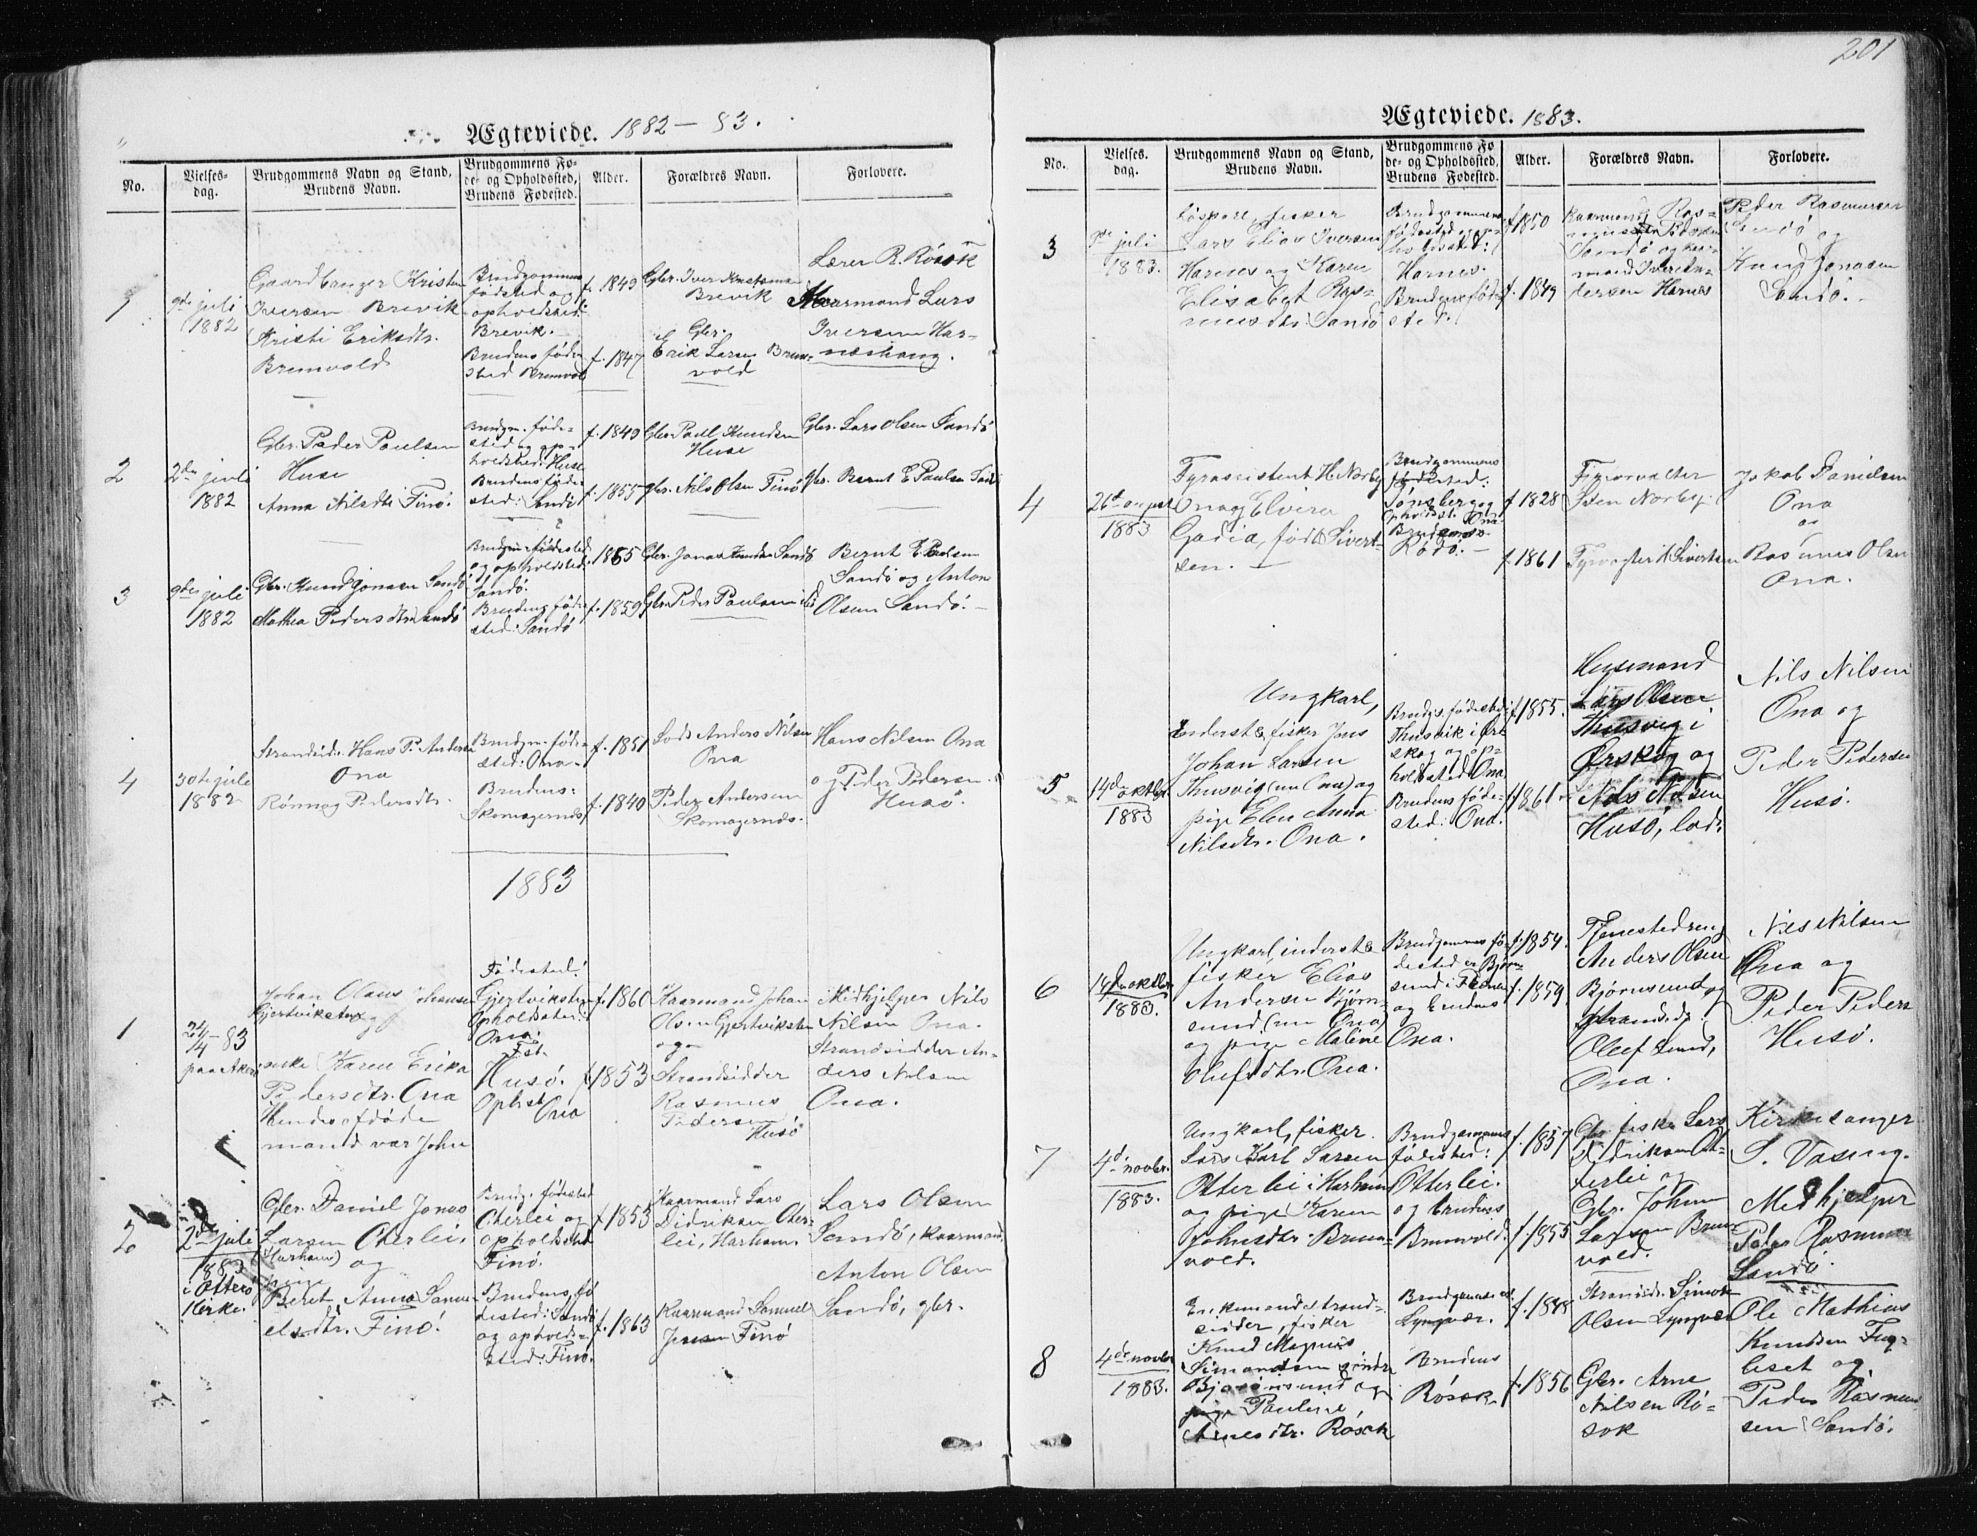 201
Ægteviede. 1882-83.
No.
Vielses-
dag.
Brudgommens Navn og Stand,
Brudens Navn.
Brudgommens Fø-
de- og Opholdssted,
Brudens Fødested.
Alder.
Forældres Navn.
Forlovere.
1
9de juli
1882
Gaardbruger Kristen
Iversen Brevik
Kristi Eriksdtr.
Bremvold
Brudgommens
fødested og
opholdssted:
Brevik.
Brudens føde-
sted Bremvold
f. 1849
f. 1847
Gbr. Iver
Brevik
Gbr.
Erik Larsen Brem-
vold
Lærer R. Røsok
Kaarmand Lars
Iversen Har-
næshaug.
2
2den juli
1882
Gbr. Peder Paulsen
Huse
Anna Nilsdtr Finø.
Brudgm. føde-
sted og op-
holdssted: Huse
Brudens føde-
sted: Sandø
f. 1849
f. 1855
Gbr. Paul Knudsen
Huse
Gbr. Nils Olsen Finø
Gbr. Lars Olsen Sandø
Gbr. Bernt E Paulsen
3
9de juli
1882
Gbr. Knud Jonasen Sandø
Mathea Pedersdtr Sandø
Brudgms fødested
og opholdssted
Sandø.
Brudens føde-
sted: Sandø
1855
f. 1859
Gbr. Jonas Knudsen Sandø
Gbr Peder Paulsen
Bernt E Paulsen
Sandø og Anton
Olsen Sandø.
4
30te juli
1882
Strandsidr. Hans P. Andersen
Ona
Rønnog Pedersdtr.
Brudgm. føde-
sted: Ona
Brudens:
Skomagernæs
f. 1851
f. 1840
Lods Anders Nilsen
Ona
Peder Andersen
Skomagernæs.
Hans Nilsen Ona
og Peder Pedersen
Husø.
1883
1
24/4-83
paa Aker
Johan Olaus Johansen
Gjertviksten
og
enke Karen Erika
Pedersdtr. Ona
Hendes afdøde
mand var John
Fødested:
Gjertviksten
Opholdssted:
Ona
Fst.
Husø.
Ophst
Ona
f. 1860
f 1853
Kaarmand Johan
Olsen Gjertviksten
og
Strandsidder
Rasmus
Pedersen
Husø
Medhjelper Nils
Nilsen Ona.
Strandsidder An-
ders Nilsen
Ona.
2
2de juli
1883
i Otterø
Kirke.
Gbr. Daniel Jonas
Larsen Otterlei,
(Harham) og
pige
Beret Anna Samu-
elsdtr. Finø.
Brudg. fødested
Otterlei og
opholdssted
Finø.
Brudens fø-
dested: Sandø
og opholds-
sted: Finø.
f 1853
f. 1863
Kaarmand Lars
Didriksen Otter-
lei, Harham.
Kaarmand Samuel
Jensen Finø
Lars Olsen
Sandø, kaarmand.
Anton Olsen
Sandø, gbr.
Ægteviede. 1883.
No.
Vielses.
dag.
Brudgommens Navn og Stand,
Brudens Navn.
Brudgommens Fø
de- og Opholdssted,
Brudens Fødested.
Alder.
Forældres Navn.
Forlovere.
3
juli
1883.
Løskarl, fisker
Lars Elias Iversen
Harnes og Karen
Elisabet Ras-
musdtr. Sandø
Brudgommens
fødested og op-
holdssted:
Harnes.
Brudens føde-
sted.
f 1850
f. 1849
Kaarmand Ras-
mus Pedersen
Sandø og kaar-
mand Iver An-
dersen Harnes
Peder Rasmussen
Sandø og
Knud Jonasen
Sandø.
4
26de august
1883
Fyrassistent H. Norby
Ona og Elvira
Gadia, født Sivert-
sen.
Brudgommens
fødested:
Tønsberg og
opholdsst. Ona
Brudens
Rødø.
f 1828
f 1861
Figiorvalter
Sten Norby.
Fyrvogter H Sivertsen
Jakob Danielsen
Ona
og
Rasmus Olsen
Ona.
5
14de oktbr
1883
Ungkarl,
inderst & fisker Jens
Johan Larsen
Thusvig (nu Ona) og
pige Elen Anna
Nilsdtr. Ona.
Brudgs fødested:
Thusvik i Ør-
skog og op-
holdssted Ona
Brudens føde-
sted: Ona.
f 1855.
f 1861
Husmand
Lars Olsen
Thusvig i
Ørskog og
Nils Nilsen
Husø, lods
Nils Nilsen
Ona og
Peder Pedersen
Husø.
6
14de oktbr
1883.
Ungkarl, inderst &
fisker Elias
Andersen Bjørn-
sund, (nu Ona)
og pige Malene
Olufsdtr. Ona.
Brudgommens fø-
dested er Bjørn-
sund i Fræna
og brudens
Ona.
f. 1854.
f. 1859
Tjenestedreng
Anders Olsen
Bjørnsund og
strandsidr.
Oluf Lund,
Ona.
Nils Nilsen
Ona og
Peder Peders
Husø.
7
4de novbr.
1883.
Ungkarl, fisker
Lars Karl Larsen
Otterlei i Harham
og pige Karen
Johnsdtr. Brem-
vold.
Brudgommens
fødested:
Otterlei.
og brudens
Bremvold.
f. 1857
f. 1855
Gbr. fisker Lars
Didriksen Ot-
terlei og
Gbr. John
Larsen Brem-
vold.
Kirkesanger
S. Vasing.
Medhjelper
Peder Rasmussen
Sandø.
8
4de novbr
1883.
Enkemand strand-
sidder, fisker
Knud Magnus
Simonsen
Bjørnsund og
pige Pauline
Arnesdtr. Røsok
Brudgommens
Lyngvær.
Brudens
Røsok
f. 1848
f. 1856
Strandsidr. Simon
Olsen Lyngvær
Gbr. Arne
Nilsen Rø-
sok
Ole Mathias
Knudsen Fug-
leset og
Peder Rasmus-
sen Sandø.